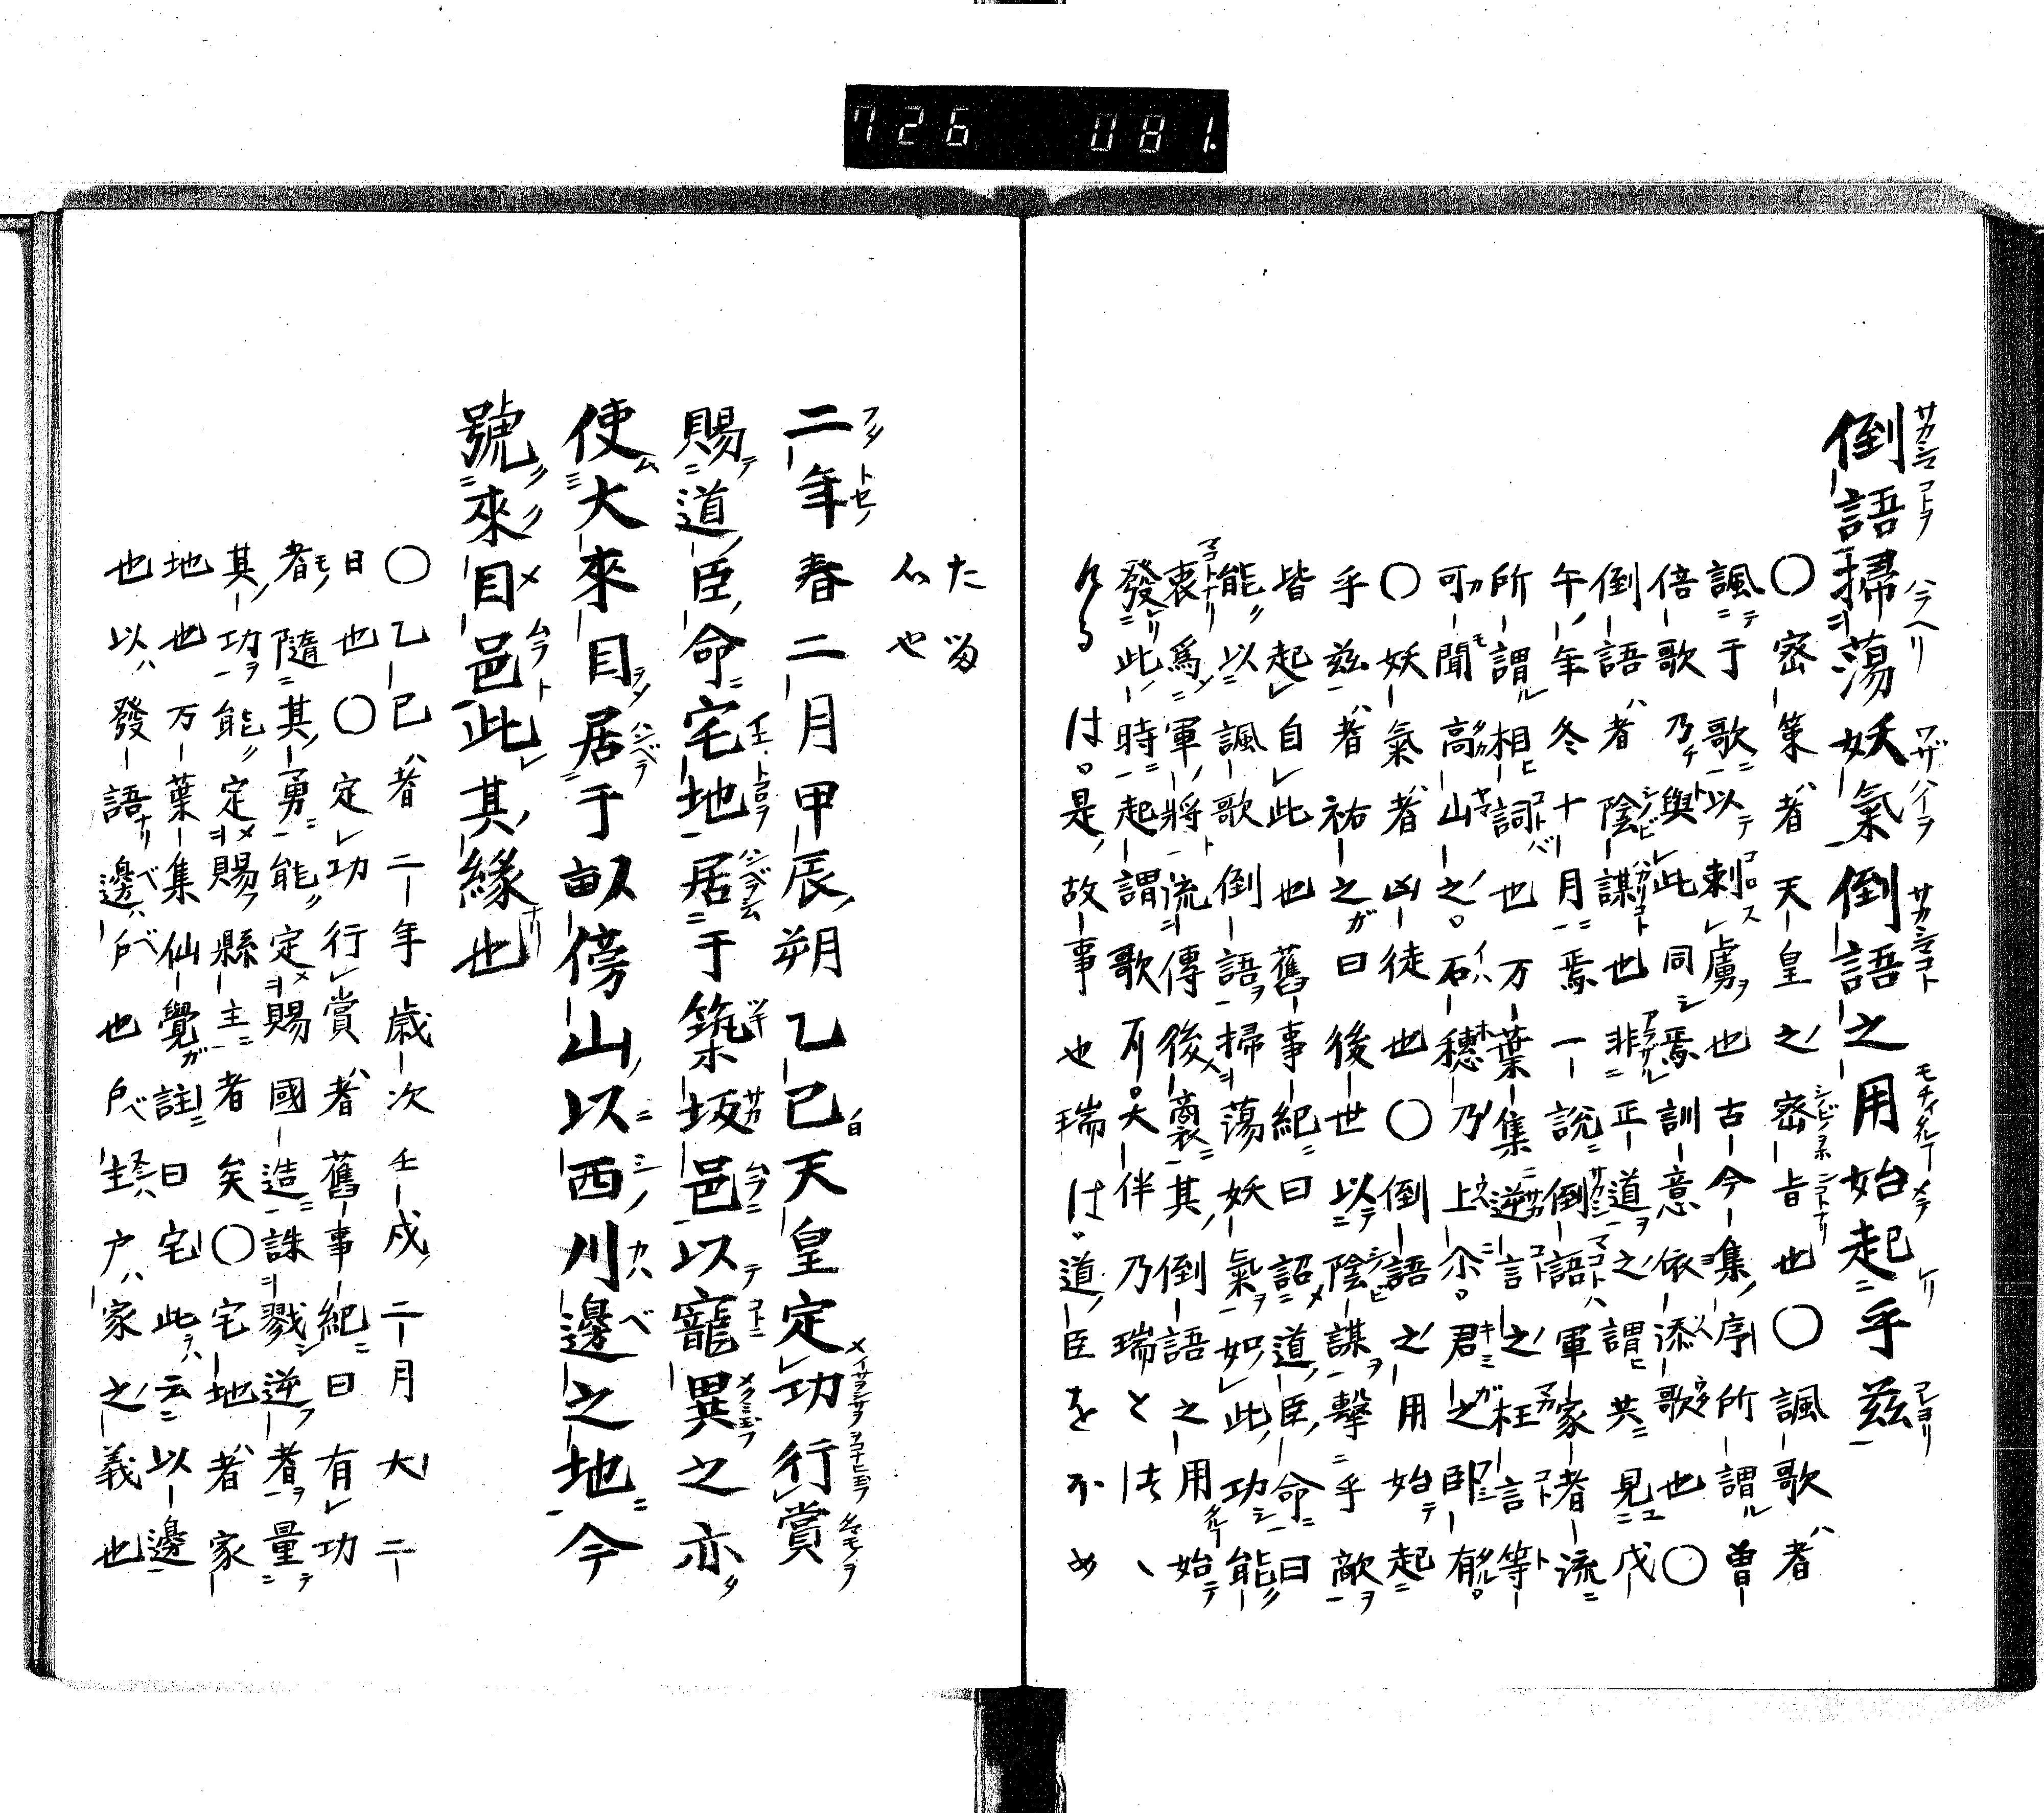 726 081.
倒語掃蕩妖氣倒語之用始起乎茲
〇密策者天皇之密旨也〇諷歌者
諷于歌以刺虜也古今集序所謂曽
倍歌乃與此同焉訓意依添歌也〇
倒語者陰謀也非正道之謂共見戊
午年冬十月焉一說倒語軍家者流
所謂相詞也万葉集逆言之枉言等
可聞高山之石穗乃上尒君之臥有
〇妖氣者凶徒也〇倒語之用始起
乎茲者祐之曰後世以陰謀擊乎敵
皆起自此也舊事紀曰詔道臣命曰
能以諷歌倒語掃蕩妖氣如此功能
衷爲軍將流傳後裔其倒語之用始
發此時起謂歌不大伴乃瑞とは丶
ける は是故事也瑞は道臣をほめ
た
心や
二年春二月甲辰朔乙巳天皇定功行賞
賜道臣命宅地居于築坂邑以寵異之亦
使大來目居于畝傍山以西川邊之地今
號來目邑此其緣也
〇乙巳者二年歳次壬戌二月大二
日也〇定功行賞者舊事紀曰有功
者隨其勇能定賜國造誅戮逆者量
其功能定賜縣主者矣〇宅地者家
地也万葉集仙覺註曰宅此云以邊
也以發語邊戶也戶ベ生戶ハ家之義也